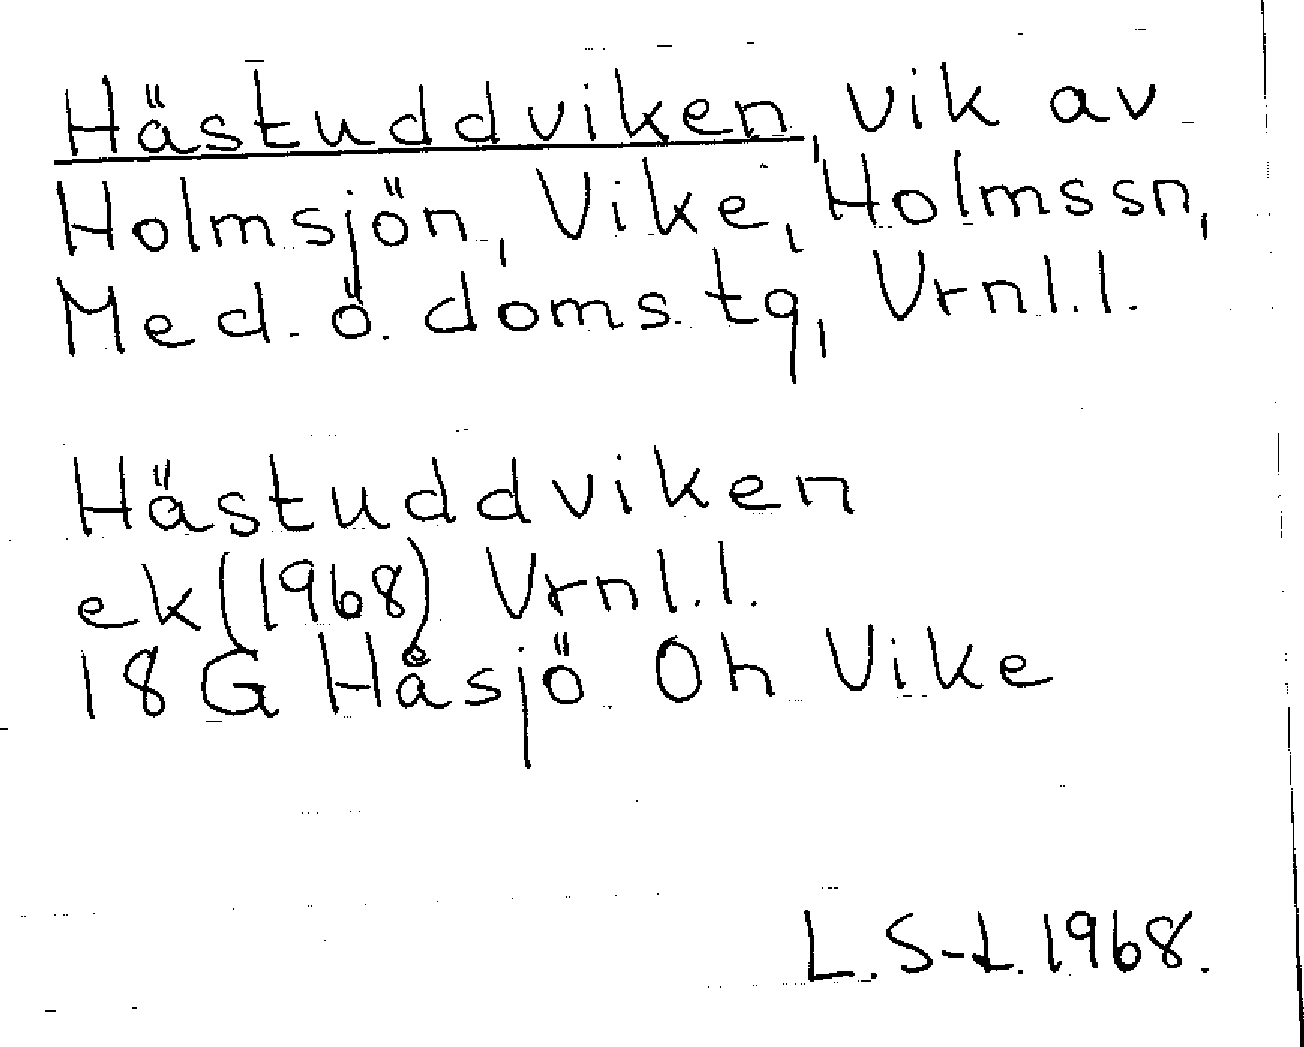 Hästuddviken, vik av
Holmsjön, Vike, Holmssn,
Med. ö. doms. tg, Vrnl.l.
Hästuddviken
ek (1968) Vrnl.l.
18 G Håsjö Oh Vike
L. S-L. 1968.